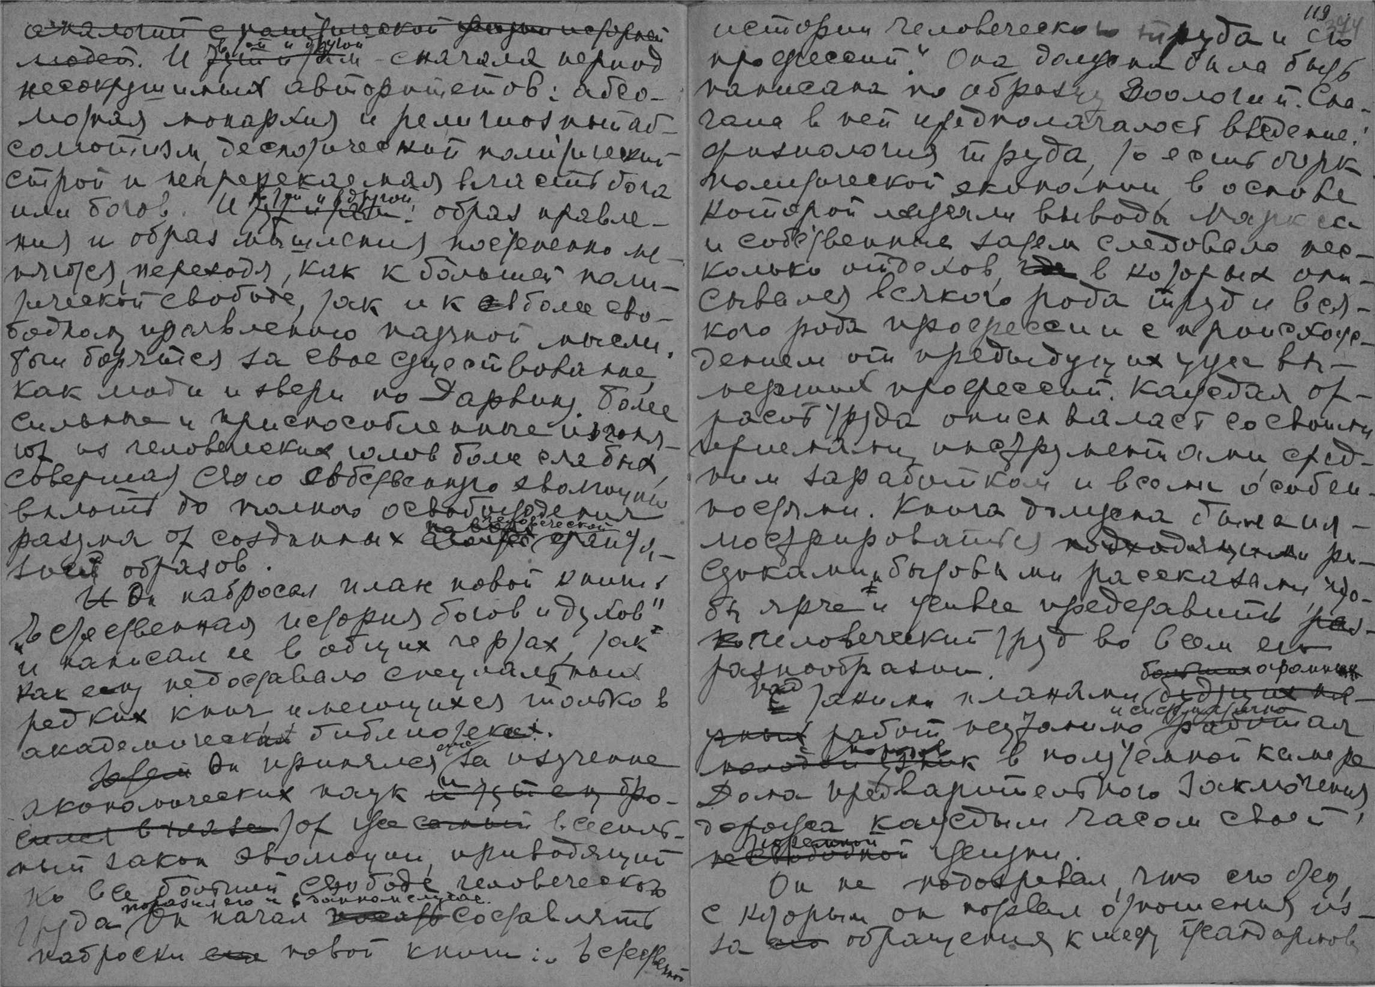 аналогий с политической историей
людей. И в той и другой сначала период
несокрушимых авторитетов: абсо-
лютная монархия и религиозный аб-
солютизм, деспотический политический
строй и непререкаемая власть бога
или богов. И в той и другой: образ правле-
ния и образ мышления постепенно ме-
няются, переходя, как к большей поли-
тической свободе, так и к более сво-
бодному проявлению научной мысли.
Боги борятся за свое существование,
как люди и звери по Дарвину. Более
сильные и приспособленные изгоня-
ют из человеческих голов более слабых,
совершая свою собственную эволюцию
вплоть до полного освобождения
разума от созданных человеческой фанта-
зией образов.
Он набросал план новой книги
"Естественная история богов и духов"
и написал ее в общих чертах, так
как ему недоставало специальных
редких книг, имеющихся только в
академических библиотеках.
Затем Он принялся за изучение
экономических наук и тут ему бро-
сился в глаза тот же самый всесиль-
ный закон эволюции, приводящий
ко все большей свободе человеческого
труда поразил его и в данном случае. Он начал составлять
наброски новой книги: "Естественной
119
истории человеческого труда и его
профессий." Она должна была быть
написана по образцу Зоологий. Сна-
чала в ней предполагалось введение:
физиология труда, то есть очерк
политической экономии, в основе
которой лежали выводы Маркса
и собственные, затем следовало нес-
колько отделов, где в которых опи-
сывался всякого рода труд и вся-
кого рода профессии с происхож-
дением от предыдущих уже вы-
мерших профессий. Каждая от-
расль труда описывалась со своими
приемами, инструментами, сред-
ним заработком и всеми особен-
ностями. Книга должна быть ил-
люстрироваться подходящими ри-
сунками, бытовыми рассказами, что-
бы ярче и живее представить
человеческий труд во всем его
разнообразии.
Над такими планами огромных
работ неустанно и систематично работал
в полутемной камере
Дома предварительного заключения,
дорожа каждым часом своей
тюремной жизни.
Он не подозревал, что его отец,
с которым он порвал отношения из-
за его обращения к нему жандармов